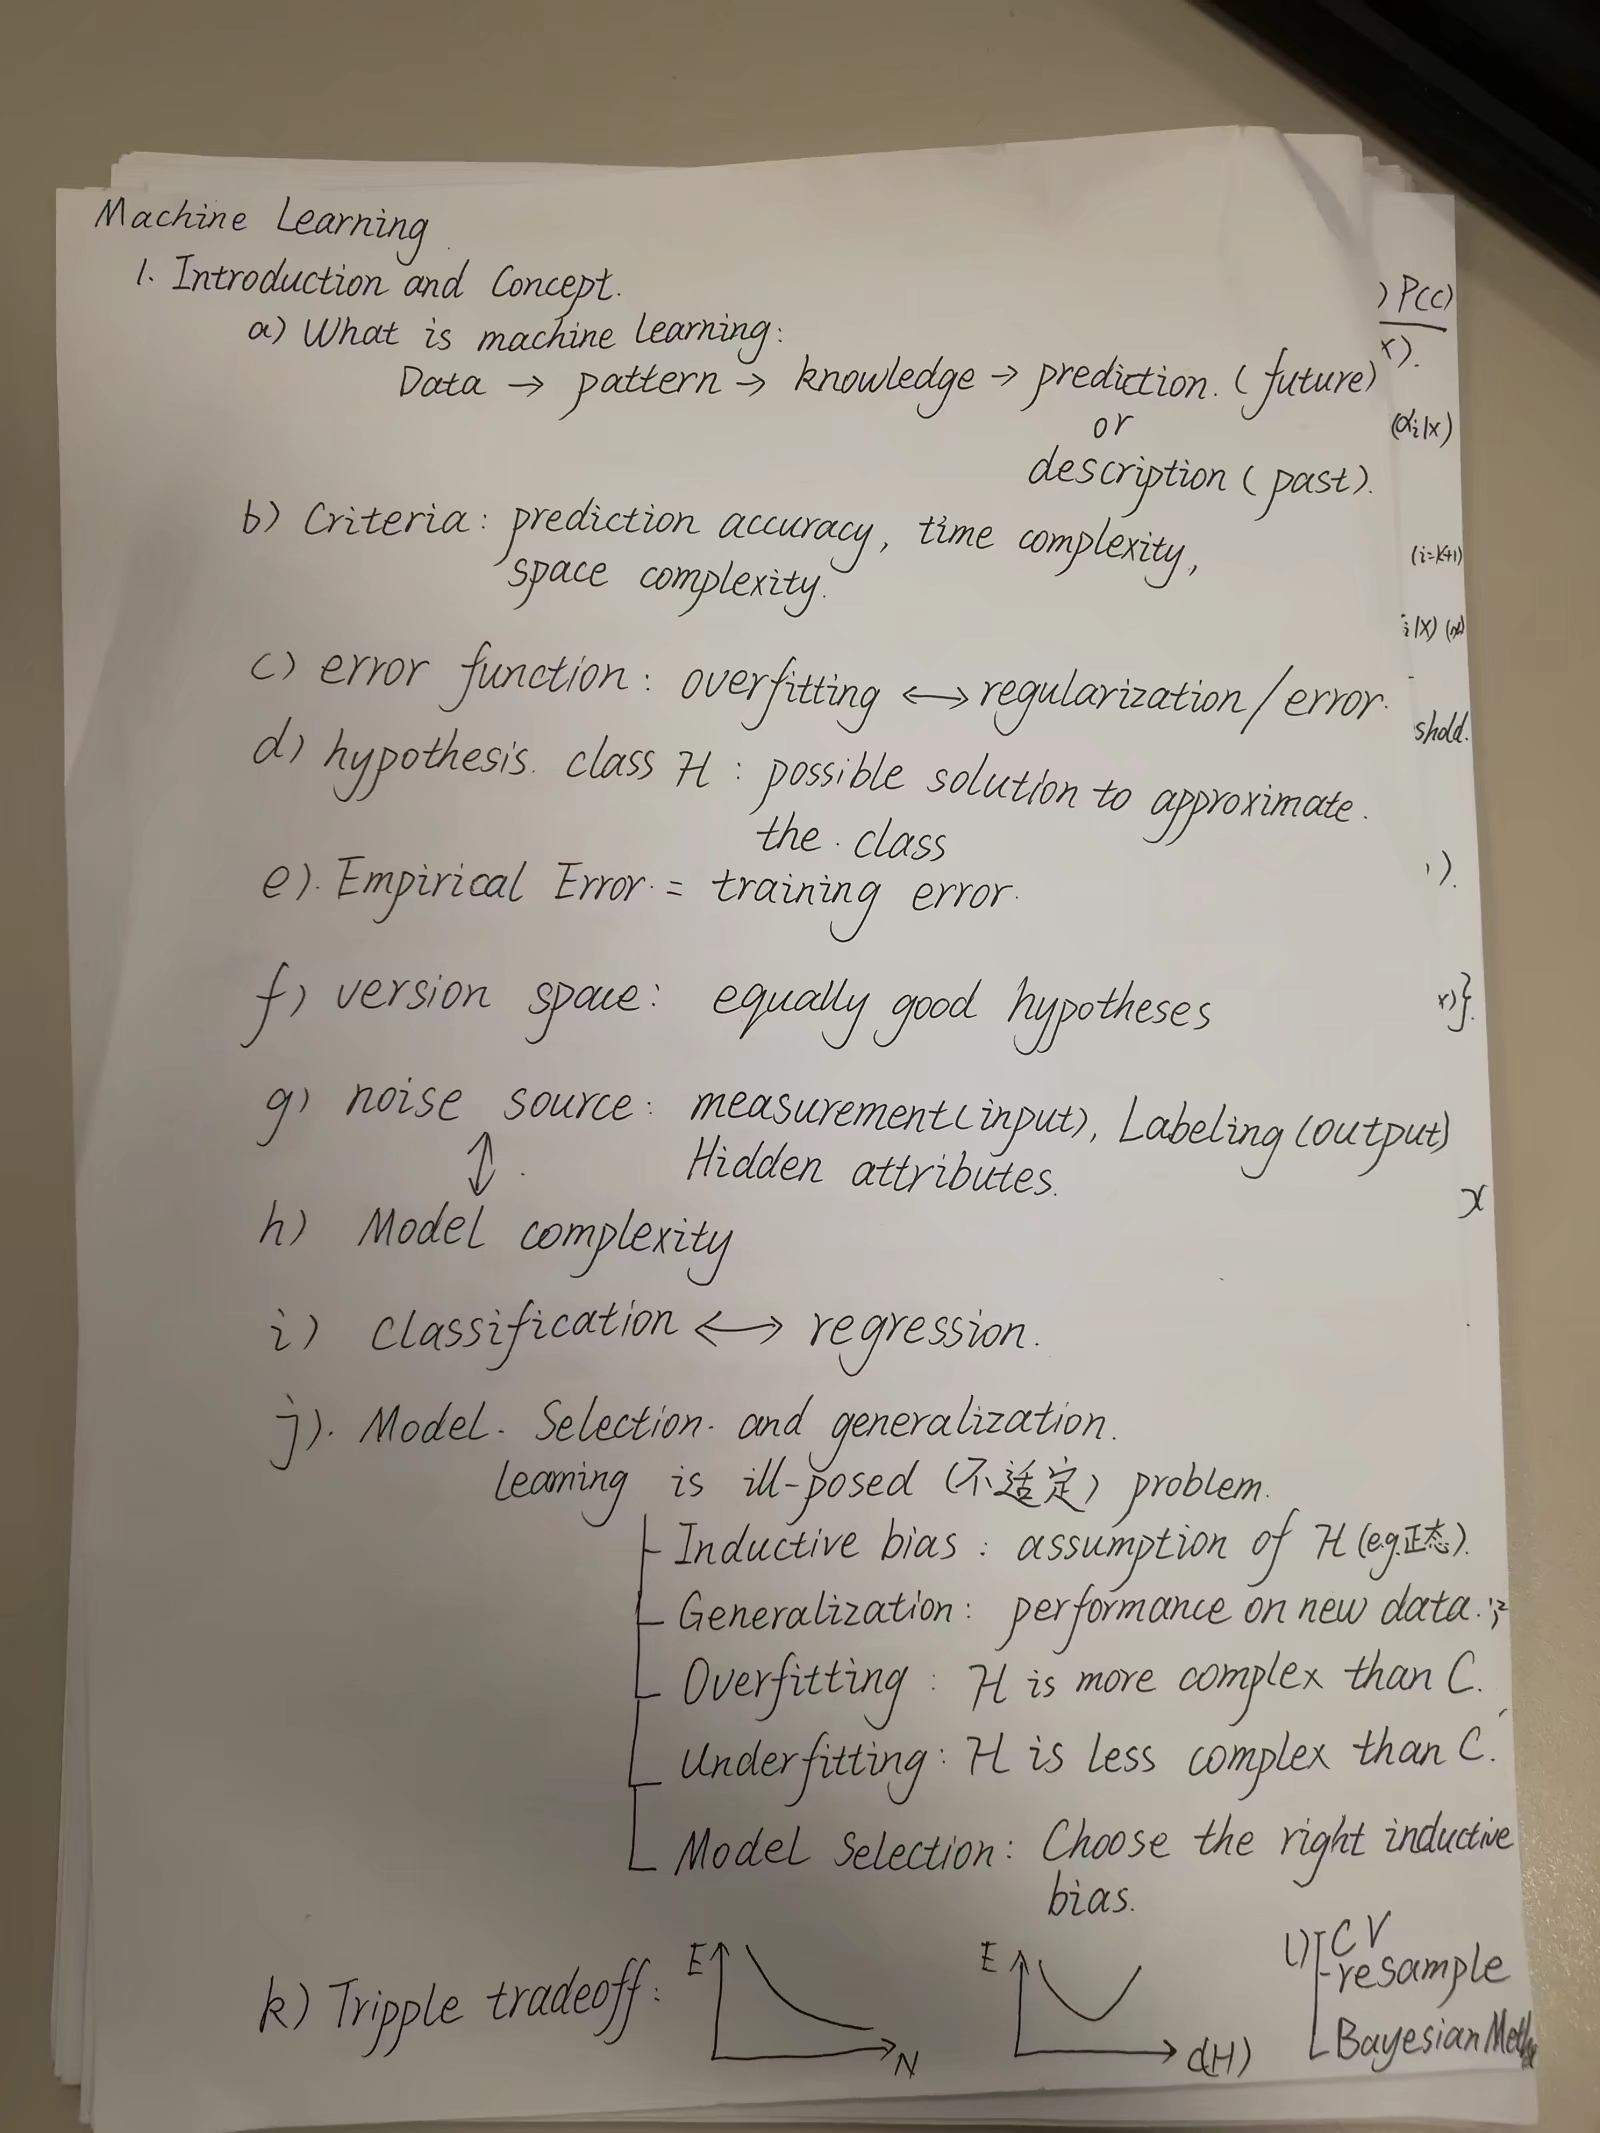 Machine Learning
1. Introduction and Concept.
a) What is machine learning:
Data → pattern → knowledge → prediction. (future)
or
description (past).
b) Criteria: prediction accuracy, time complexity,
space complexity.
c) error function: overfitting ↔ regularization/error.
d) hypothesis. class H : possible solution to approximate.
the. class
e). Empirical Error. = training error.
f) version space: equally good hypotheses
g) noise source: measurement(input), Labeling (output)
↕ Hidden attributes.
h) Model complexity
i) classification ↔ regression.
j). Model. Selection. and generalization.
Learning is ill-posed (不适定) problem.
Inductive bias : assumption of H (e.g.正态).
Generalization: performance on new data.
Overfitting : H is more complex than C.
Underfitting: H is less complex than C.
Model Selection: Choose the right inductive
bias.
k) Tripple tradeoff: E N E c(H)
l) CV
resample
Bayesian
) P(c)
x).
(αi|x)
(i=k+1)
i|x)
shold.
).
x)}.
x